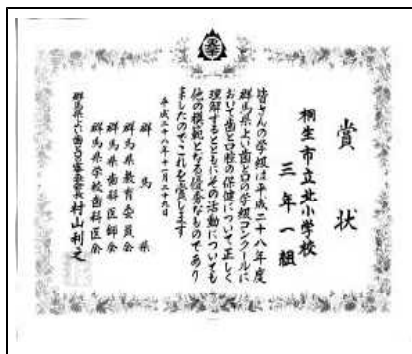 賞状
桐生市立北小学校
三年一組
皆さんの学級は平成二十八年度
群馬県よい歯と口の学級コンクールに
おいて歯と口腔の保健について正しく
理解するとともにその活動についても
他の模範となる優秀なものであり
ましたのでこれを賞します
平成二十八年十一月二十九日
群馬県
群馬県教育委員会
群馬県歯科医師会
群馬県学校歯科医会
村山利之